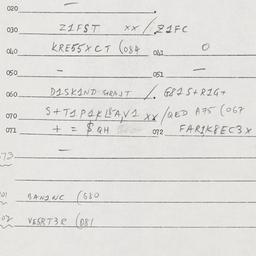 020 —
030 Z1FST xx / Z1FC
040 KRE55XCT (084 041 O
050 — 051 —
060 D1SK1ND GRANT /. G81S+R1G+
070 S+T1P1KL8A,V1 xx /QED A75 (067
071 + = $ GH 072 FAR1K8EC3X
073 —
01 BAN1NC (680
02 VE5RT3R (081